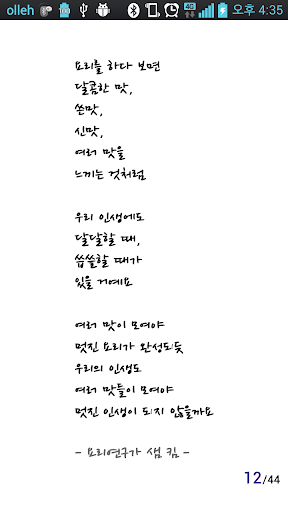 olleh 4G 오후 4:35
요리를 하다 보면
달콤한 맛,
쓴맛,
신맛,
여러 맛을
느끼는 것처럼
우리 인생에도
달달할 때,
씁쓸할 때가
있을 거예요
여러 맛이 모여야
멋진 요리가 완성되듯
우리의 인생도
여러 맛들이 모여야
멋진 인생이 되지 않을까요
- 요리연구가 샘 킴 -
12/44